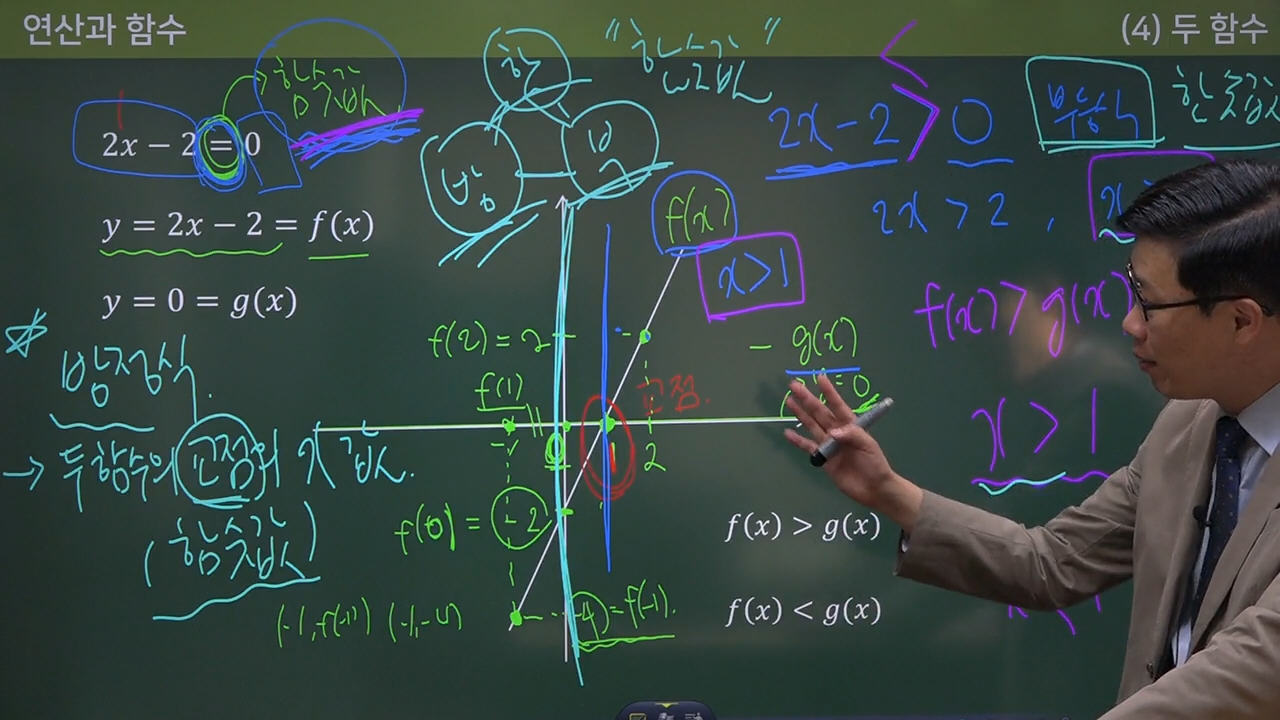 연산과 함수
(4) 두 함수
함숫값
2x − 2 = 0
y = 2x − 2 = f(x)
y = 0 = g(x)
방정식
→ 두 함수의 교점의 x값.
(함숫값)
함
방
부
"함숫값"
f(x)
x > 1
f(2) = 2
f(1)
g(x)
교점.
1
2
f(0) = -2
(-1, f(-1)) (-1, -4)
-4) = f(-1).
2x − 2 > 0
부등식
함숫값
2x > 2 ,
f(x) > g(x)
x > 1
f(x) > g(x)
f(x) < g(x)